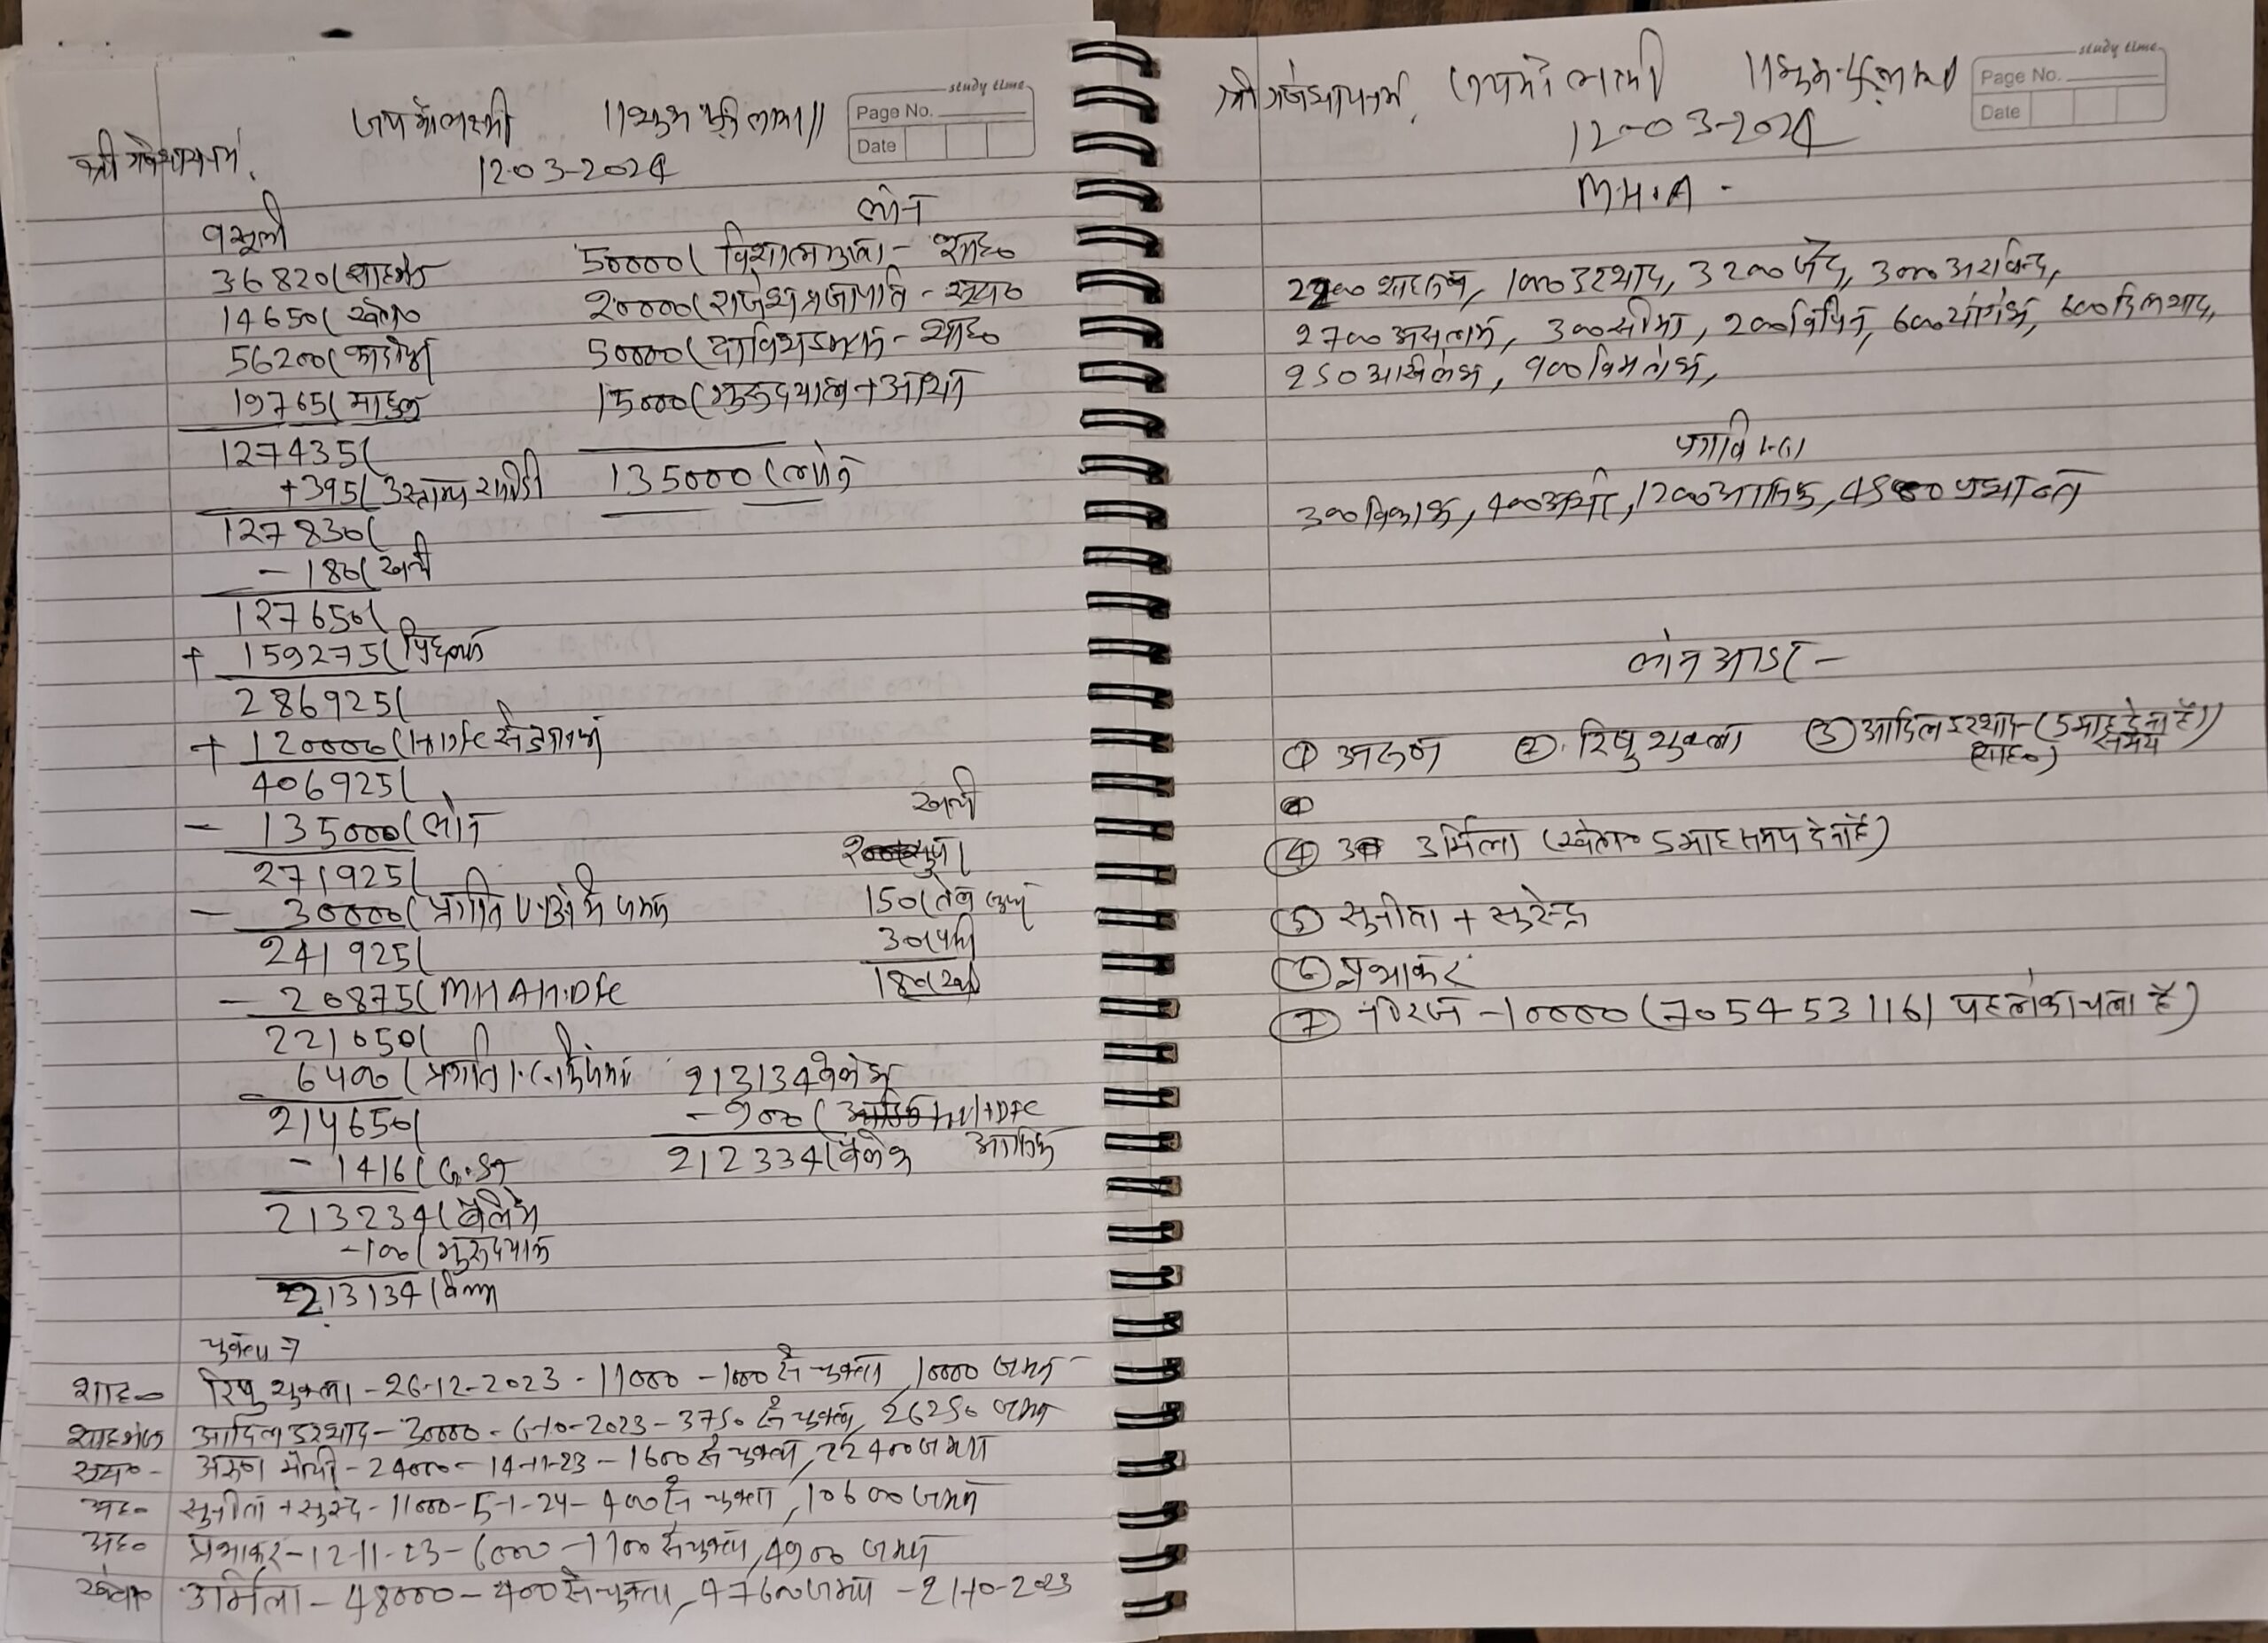 जय माँ लक्ष्मी ||शुभ लाभ||
study time
Page No.
Date
श्री गणेशाय नमः
12-03-2024
वसूली
लोन
36820( शाहगंज
50000( विशाल गुप्ता - शाह०
14650( खेता०
20000( राजेश प्रजापति - सूय०
56200(
50000( - शाह०
19765(
15000( गुरुदयाल +
127435(
+395(
135000( लोन
127830(
- 180( खर्चा
127650(
+ 159275( पिछला
286925(
+ 120000( HDFC से
406925(
- 135000( लोन
271925(
- 30000( प्रगति में जमा
241925(
- 20875( MHA HDFC
221050(
6400( प्रगति
214650(
- 1416( G.ST
213234(
-100( गुरुदयाल
213134(
खर्चा
150( तेल
30( पानी
180( खर्चा
213134
- 900( HDFC
212334(
चुक्ता →
शाह० रिषु शुक्ला - 26-12-2023 - 11000 - 1000 से चुक्ता, 10000 जमा
शाहगंज आदिल इरशाद - 30000 - 6-10-2023 - 3750 से चुक्ता, 26250 जमा
सूय० - अरुण मौर्या - 24000 - 14-11-23 - 1600 से चुक्ता, 22400 जमा
अह० सुनीता + सुरेन्द्र - 11000 - 5-1-24 - 400 से चुक्ता, 10600 जमा
अह० प्रभाकर - 12-11-23 - 6000 - 1100 से चुक्ता, 4900 जमा
खेता० उर्मिला - 48000 - 400 से चुक्ता, 47600 जमा - 21-10-2023
श्री गणेशाय नमः जय माँ लक्ष्मी ||शुभ लाभ||
study time
Page No.
Date
12-03-2024
M.H.A -
2200 1000 इरशाद, 3200 3000 अरविन्द,
2700 300 सीमा, 200 विपिन, 600 योगेश, 600 दिलशाद,
250 अखिलेश, 900 विमलेश,
300 विकास, 400 1200 आतिफ, 4500
लोन आडर -
① अरुण ② रिषु शुक्ला ③ आदिल इरशाद - (5 माह देना है)
(शाह०) समय
④ उर्मिला (खेता० 5 माह समय देना है)
⑤ सुनीता + सुरेन्द्र
⑥ प्रभाकर
⑦ नीरज - 10000 (7054531161 पहले का चला है)